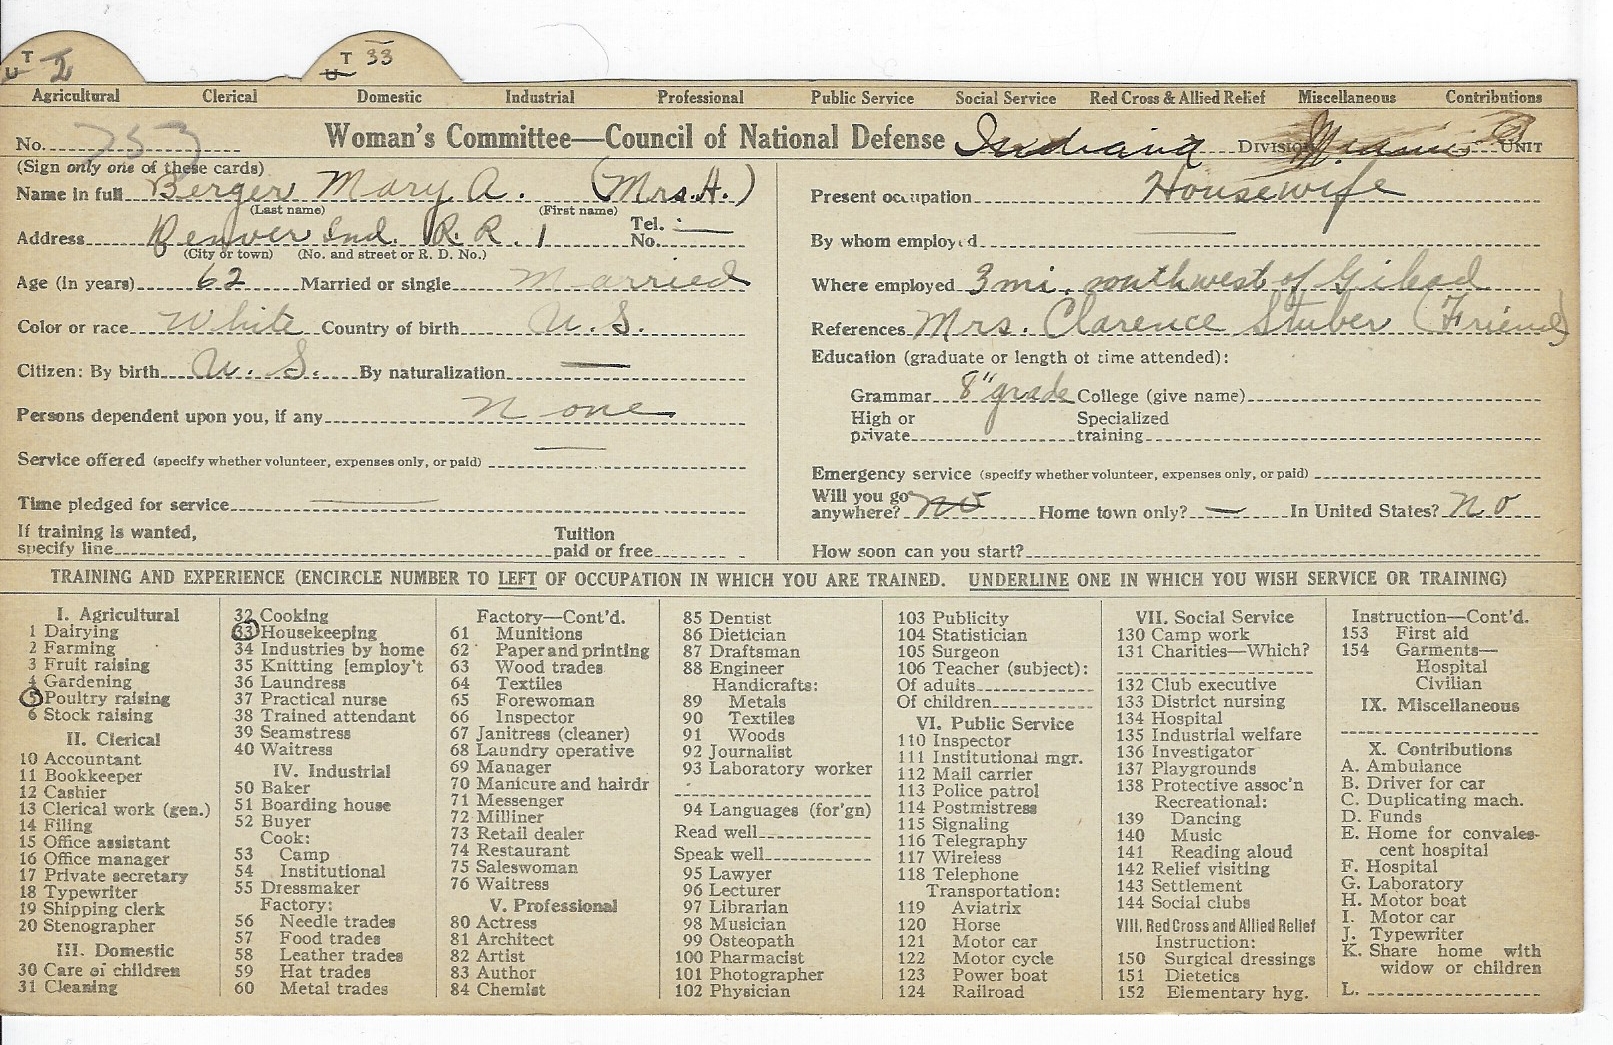 T
U I
T 33
U
Agricultural Clerical Domestic Industrial Professional Public Service Social Service Red Cross & Allied Relief Miscellaneous Contributions
No. 753 Woman's Committee—Council of National Defense Indiana Division Miami UNIT
(Sign only one of these cards)
Name in full Berger Mary A. (Mrs. A.)
(Last name) (First name)
Address Denver Ind. R.R. 1 Tel. No. —
(City or town) (No. and street or R. D. No.)
Age (in years) 62 Married or single Married
Color or race White Country of birth U. S.
Citizen: By birth U. S. By naturalization —
Persons dependent upon you, if any None
Service offered (specify whether volunteer, expenses only, or paid) —
Time pledged for service —
If training is wanted, specify line Tuition paid or free
Present occupation Housewife
By whom employed —
Where employed 3 mi. southwest of Gilead
References Mrs. Clarence Stuber (Friend)
Education (graduate or length of time attended):
Grammar 8" grade College (give name)
High or private Specialized training
Emergency service (specify whether volunteer, expenses only, or paid)
Will you go anywhere? no Home town only? — In United States? No
How soon can you start?
TRAINING AND EXPERIENCE (ENCIRCLE NUMBER TO LEFT OF OCCUPATION IN WHICH YOU ARE TRAINED. UNDERLINE ONE IN WHICH YOU WISH SERVICE OR TRAINING)
I. Agricultural
1 Dairying
2 Farming
3 Fruit raising
4 Gardening
5 Poultry raising
6 Stock raising
II. Clerical
10 Accountant
11 Bookkeeper
12 Cashier
13 Clerical work (gen.)
14 Filing
15 Office assistant
16 Office manager
17 Private secretary
18 Typewriter
19 Shipping clerk
20 Stenographer
III. Domestic
30 Care of children
31 Cleaning
32 Cooking
33 Housekeeping
34 Industries by home
35 Knitting [employ't
36 Laundress
37 Practical nurse
38 Trained attendant
39 Seamstress
40 Waitress
IV. Industrial
50 Baker
51 Boarding house
52 Buyer
Cook:
53 Camp
54 Institutional
55 Dressmaker
Factory:
56 Needle trades
57 Food trades
58 Leather trades
59 Hat trades
60 Metal trades
Factory—Cont'd.
61 Munitions
62 Paper and printing
63 Wood trades
64 Textiles
65 Forewoman
66 Inspector
67 Janitress (cleaner)
68 Laundry operative
69 Manager
70 Manicure and hairdr
71 Messenger
72 Milliner
73 Retail dealer
74 Restaurant
75 Saleswoman
76 Waitress
V. Professional
80 Actress
81 Architect
82 Artist
83 Author
84 Chemist
85 Dentist
86 Dietician
87 Draftsman
88 Engineer
Handicrafts:
89 Metals
90 Textiles
91 Woods
92 Journalist
93 Laboratory worker
94 Languages (for'gn)
Read well
Speak well
95 Lawyer
96 Lecturer
97 Librarian
98 Musician
99 Osteopath
100 Pharmacist
101 Photographer
102 Physician
103 Publicity
104 Statistician
105 Surgeon
106 Teacher (subject):
Of adults
Of children
VI. Public Service
110 Inspector
111 Institutional mgr.
112 Mail carrier
113 Police patrol
114 Postmistress
115 Signaling
116 Telegraphy
117 Wireless
118 Telephone
Transportation:
119 Aviatrix
120 Horse
121 Motor car
122 Motor cycle
123 Power boat
124 Railroad
VII. Social Service
130 Camp work
131 Charities—Which?
132 Club executive
133 District nursing
134 Hospital
135 Industrial welfare
136 Investigator
137 Playgrounds
138 Protective assoc'n
Recreational:
139 Dancing
140 Music
141 Reading aloud
142 Relief visiting
143 Settlement
144 Social clubs
VIII. Red Cross and Allied Relief
Instruction:
150 Surgical dressings
151 Dietetics
152 Elementary hyg.
Instruction—Cont'd.
153 First aid
154 Garments—
Hospital
Civilian
IX. Miscellaneous
X. Contributions
A. Ambulance
B. Driver for car
C. Duplicating mach.
D. Funds
E. Home for convales-
cent hospital
F. Hospital
G. Laboratory
H. Motor boat
I. Motor car
J. Typewriter
K. Share home with
widow or children
L.